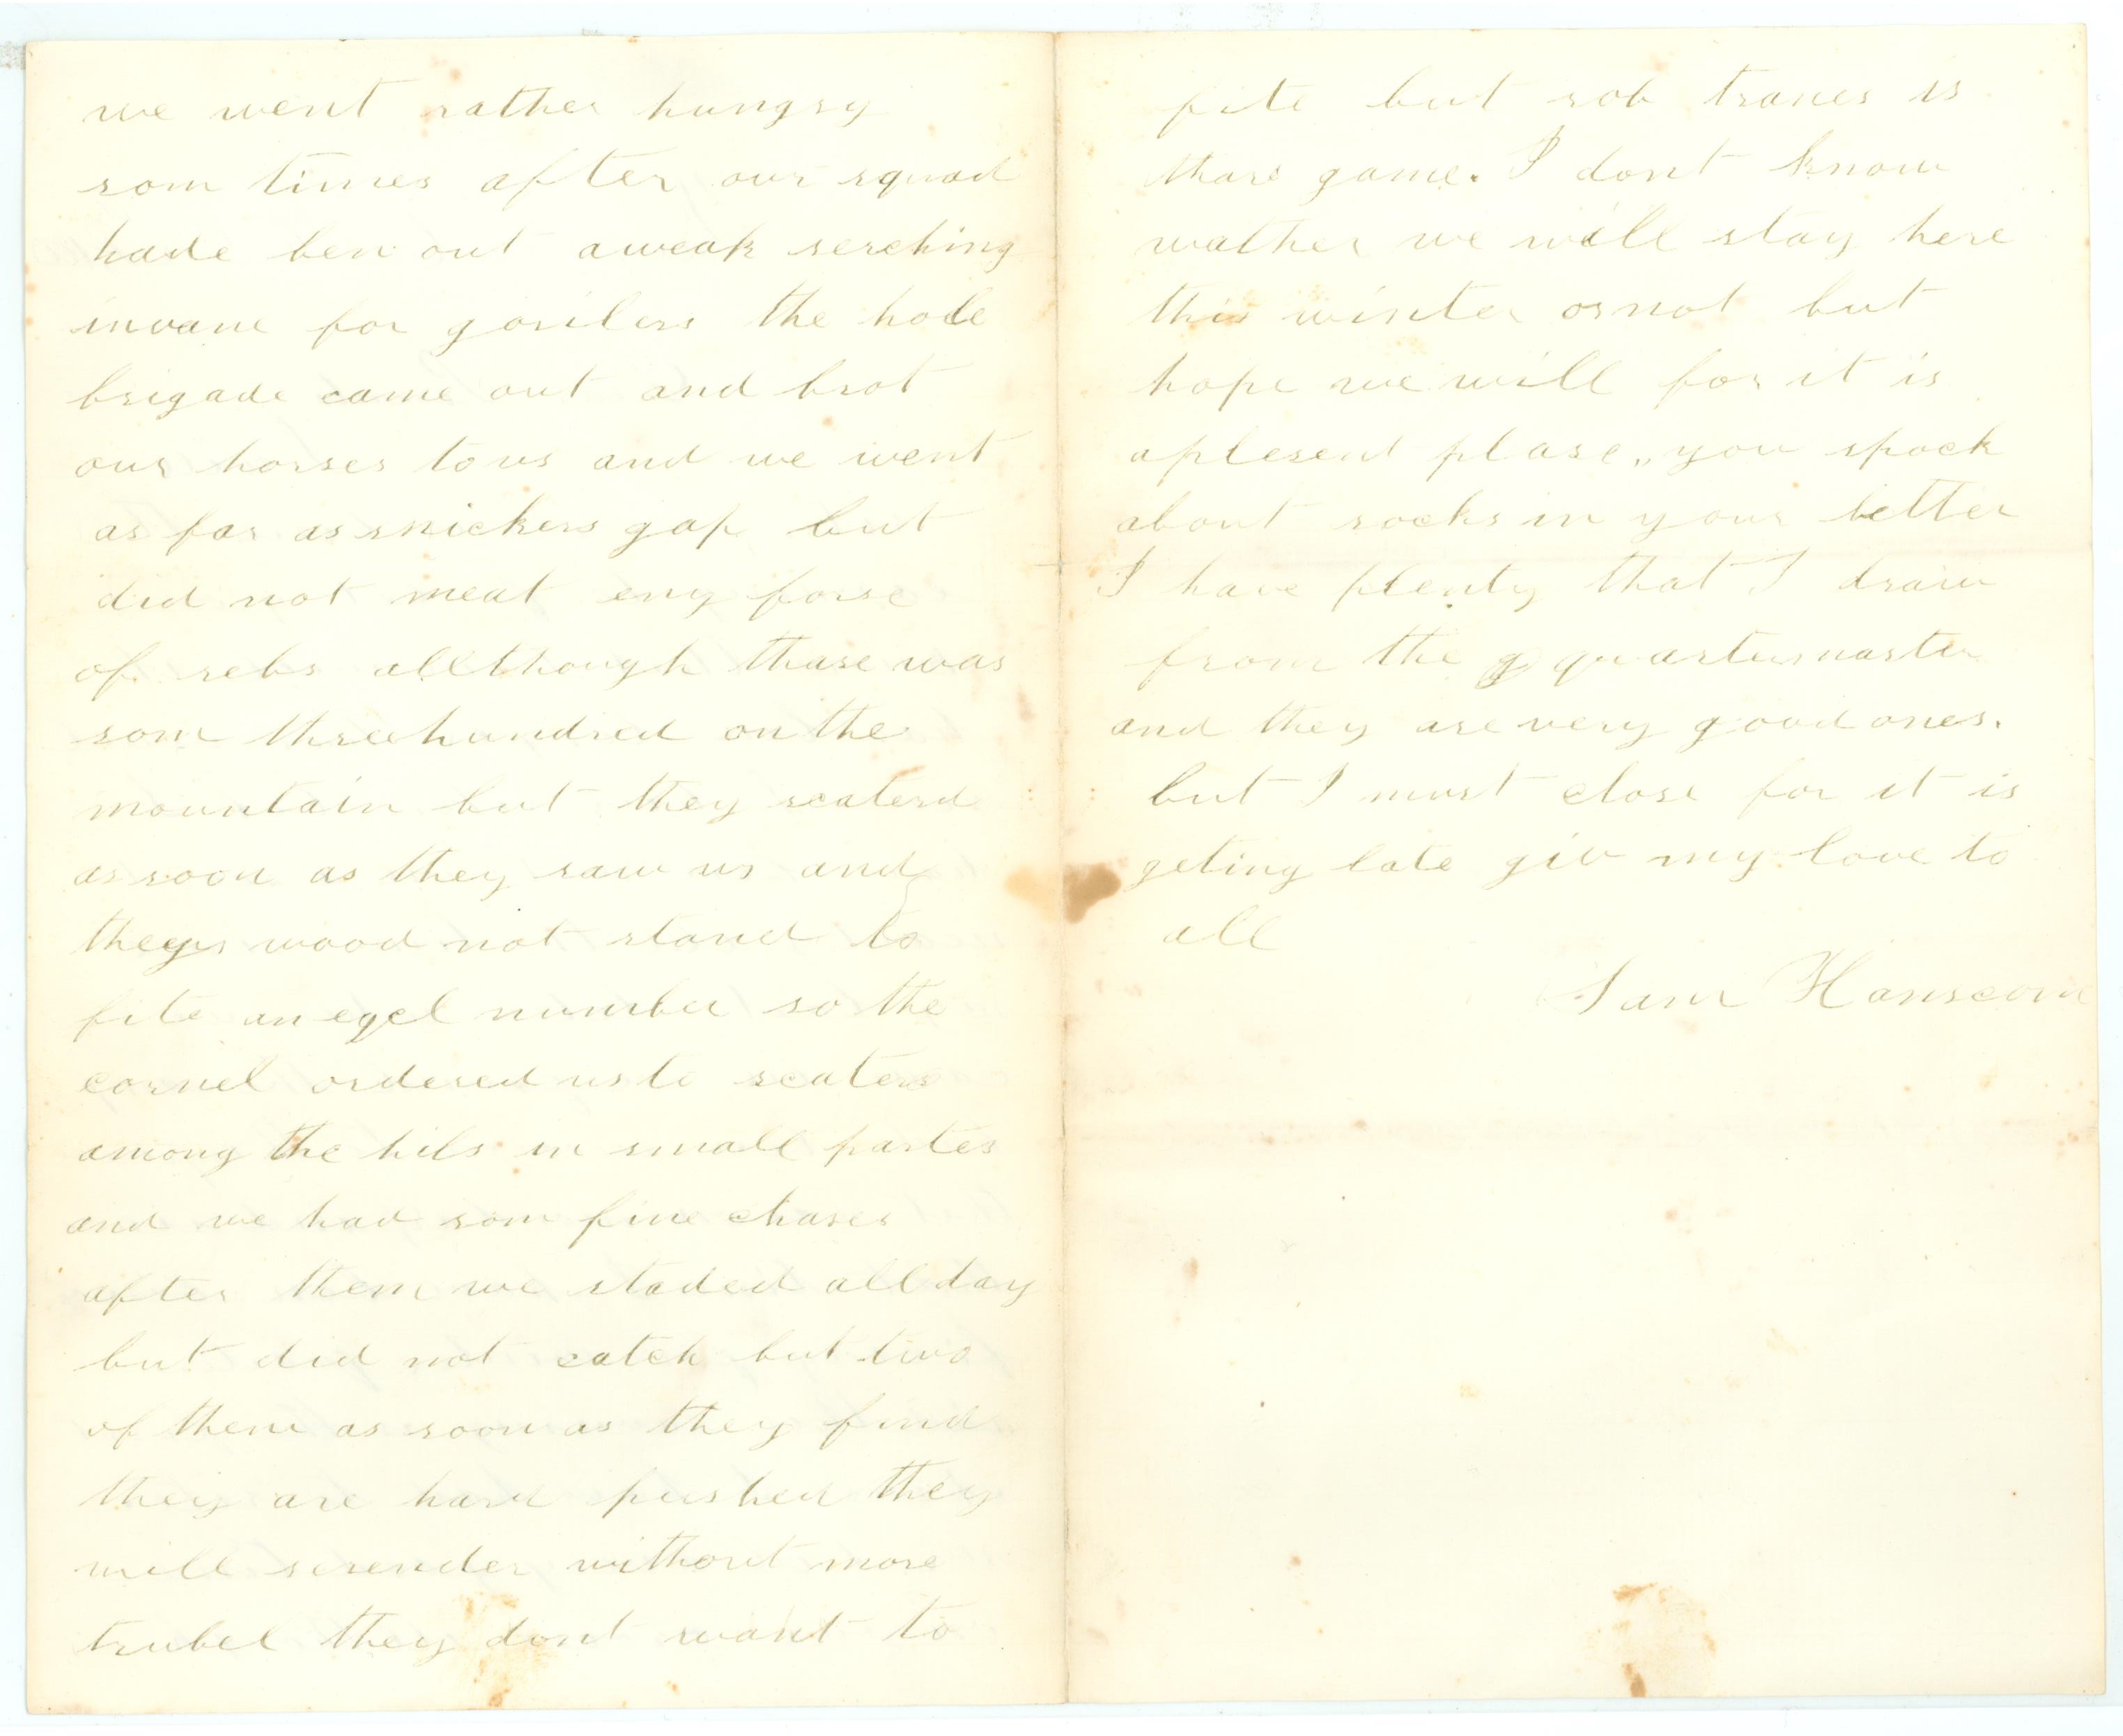 we went rather hungry
som times after our squad
hade ben out a weak serching
invane for gorilers the hole
brigade came out and brot
our horses to us and we went
as far as snickers gap but
did not meat eny forse
of rebs allthough thare was
som three hundred on the
mountain but they scaterd
as soon as they saw us and
they wood not stand to
fite an eqel number so the
cornel ordered us to scater
among the hils in small partes
and we had som fine chases
after them we staded all day
but did not catch but two
of them as soon as they find
they are hard pushed they
will serender without more
trubel they dont want to
fite but rob tranes is
thare game. I dont know
wather we will stay here
this winter or not but
hope we will for it is
a plesent plase, you spock
about socks in your letter
I have plenty that I draw
from the quartermaster
and they are very good ones.
but I must close for it is
geting late giv my love to
all
Sam Hanscom